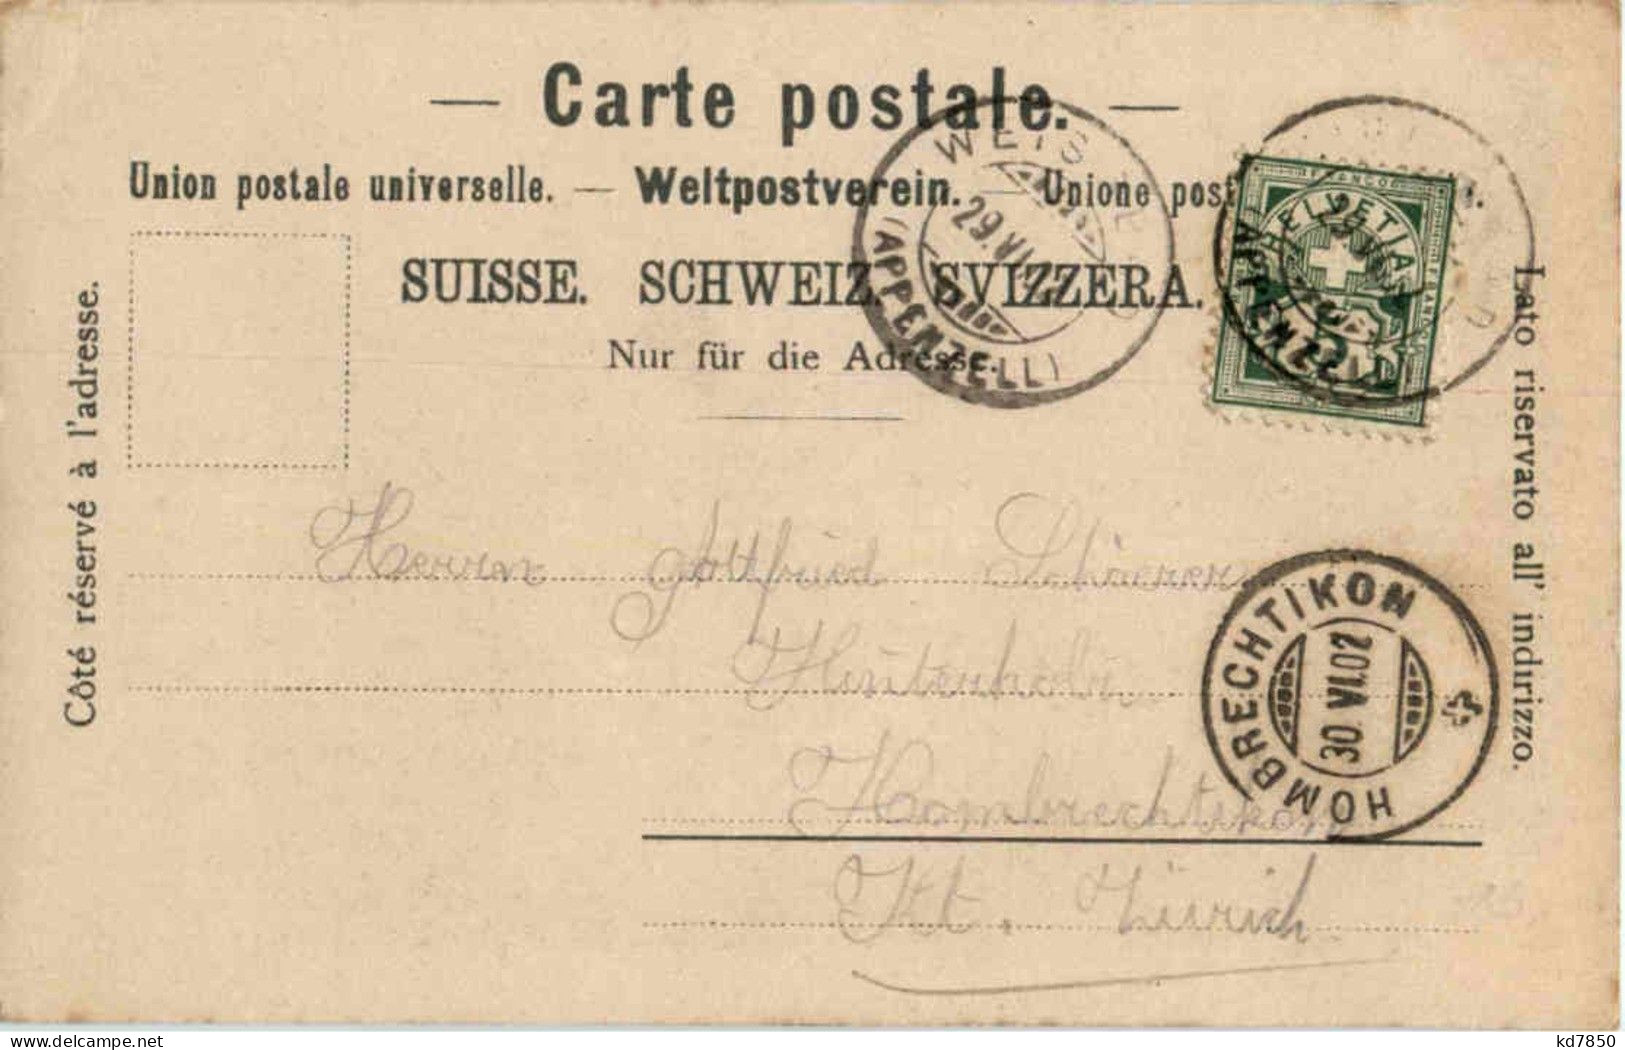 — Carte postale. —
Union postale universelle. — Weltpostverein. — Unione post
SUISSE. SCHWEIZ. SVIZZERA.
Nur für die Adresse.
Côté réservé à l'adresse.
Lato riservato all' indirizzo.
(APPENZELL)
29.VI
FRANCO
HELVETIA
5
29.VI
(APPENZELL)
Herrn Gottfried
Hombrechtikon
Kt. Zürich
HOMBRECHTIKON
30.VI.02
kd7850